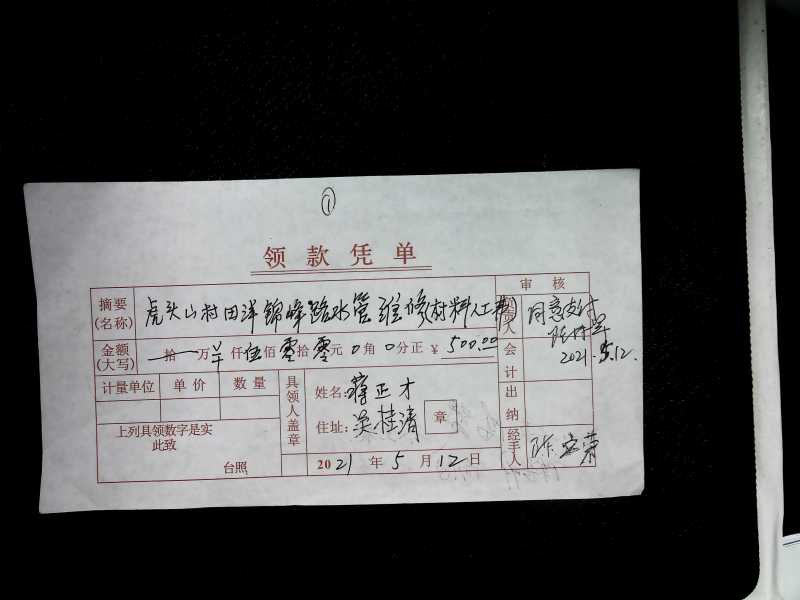 ①
领款凭单
摘要(名称) 虎头山村田洋锦峰路水管维修(材料人工费)
审核
负责人 同意支付
2021.5.12.
金额(大写) 拾 万 羊 仟 伍 佰 零 拾 零 元 0 角 0 分正 ¥ 500.00
会计
计量单位 单价 数量
具领人盖章
姓名: 蒋正才
住址: 吴桂清 章
出纳
上列具领数字是实
此致
台照
2021 年 5 月 12 日
经手人